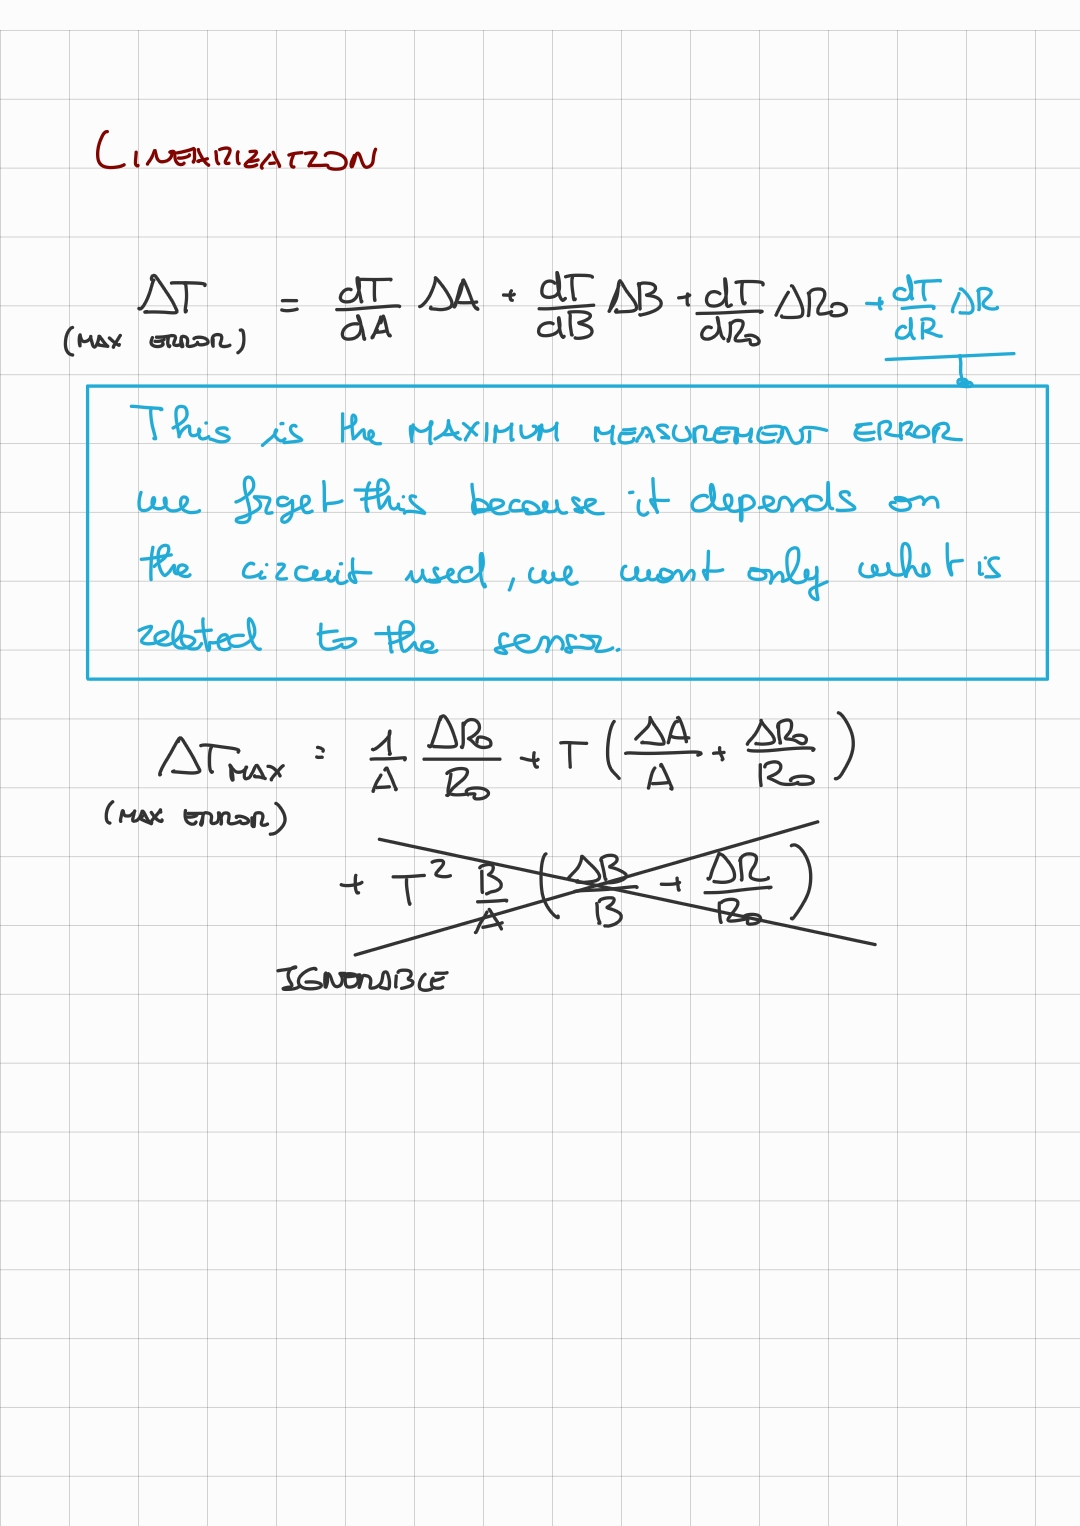 LINEARIZATION
ΔT = dT/dA ΔA + dT/dB ΔB + dT/dR₀ ΔR₀ + dT/dR ΔR
(MAX ERROR)
This is the MAXIMUM MEASUREMENT ERROR
we frget this because it depends on
the circuit used, we want only what is
related to the sensor.
ΔT_MAX = 1/A ΔR₀/R₀ + T (ΔA/A + ΔR₀/R₀)
(MAX ERROR)
+ T² B/A (ΔB/B + ΔR/R₀)
IGNORABLE